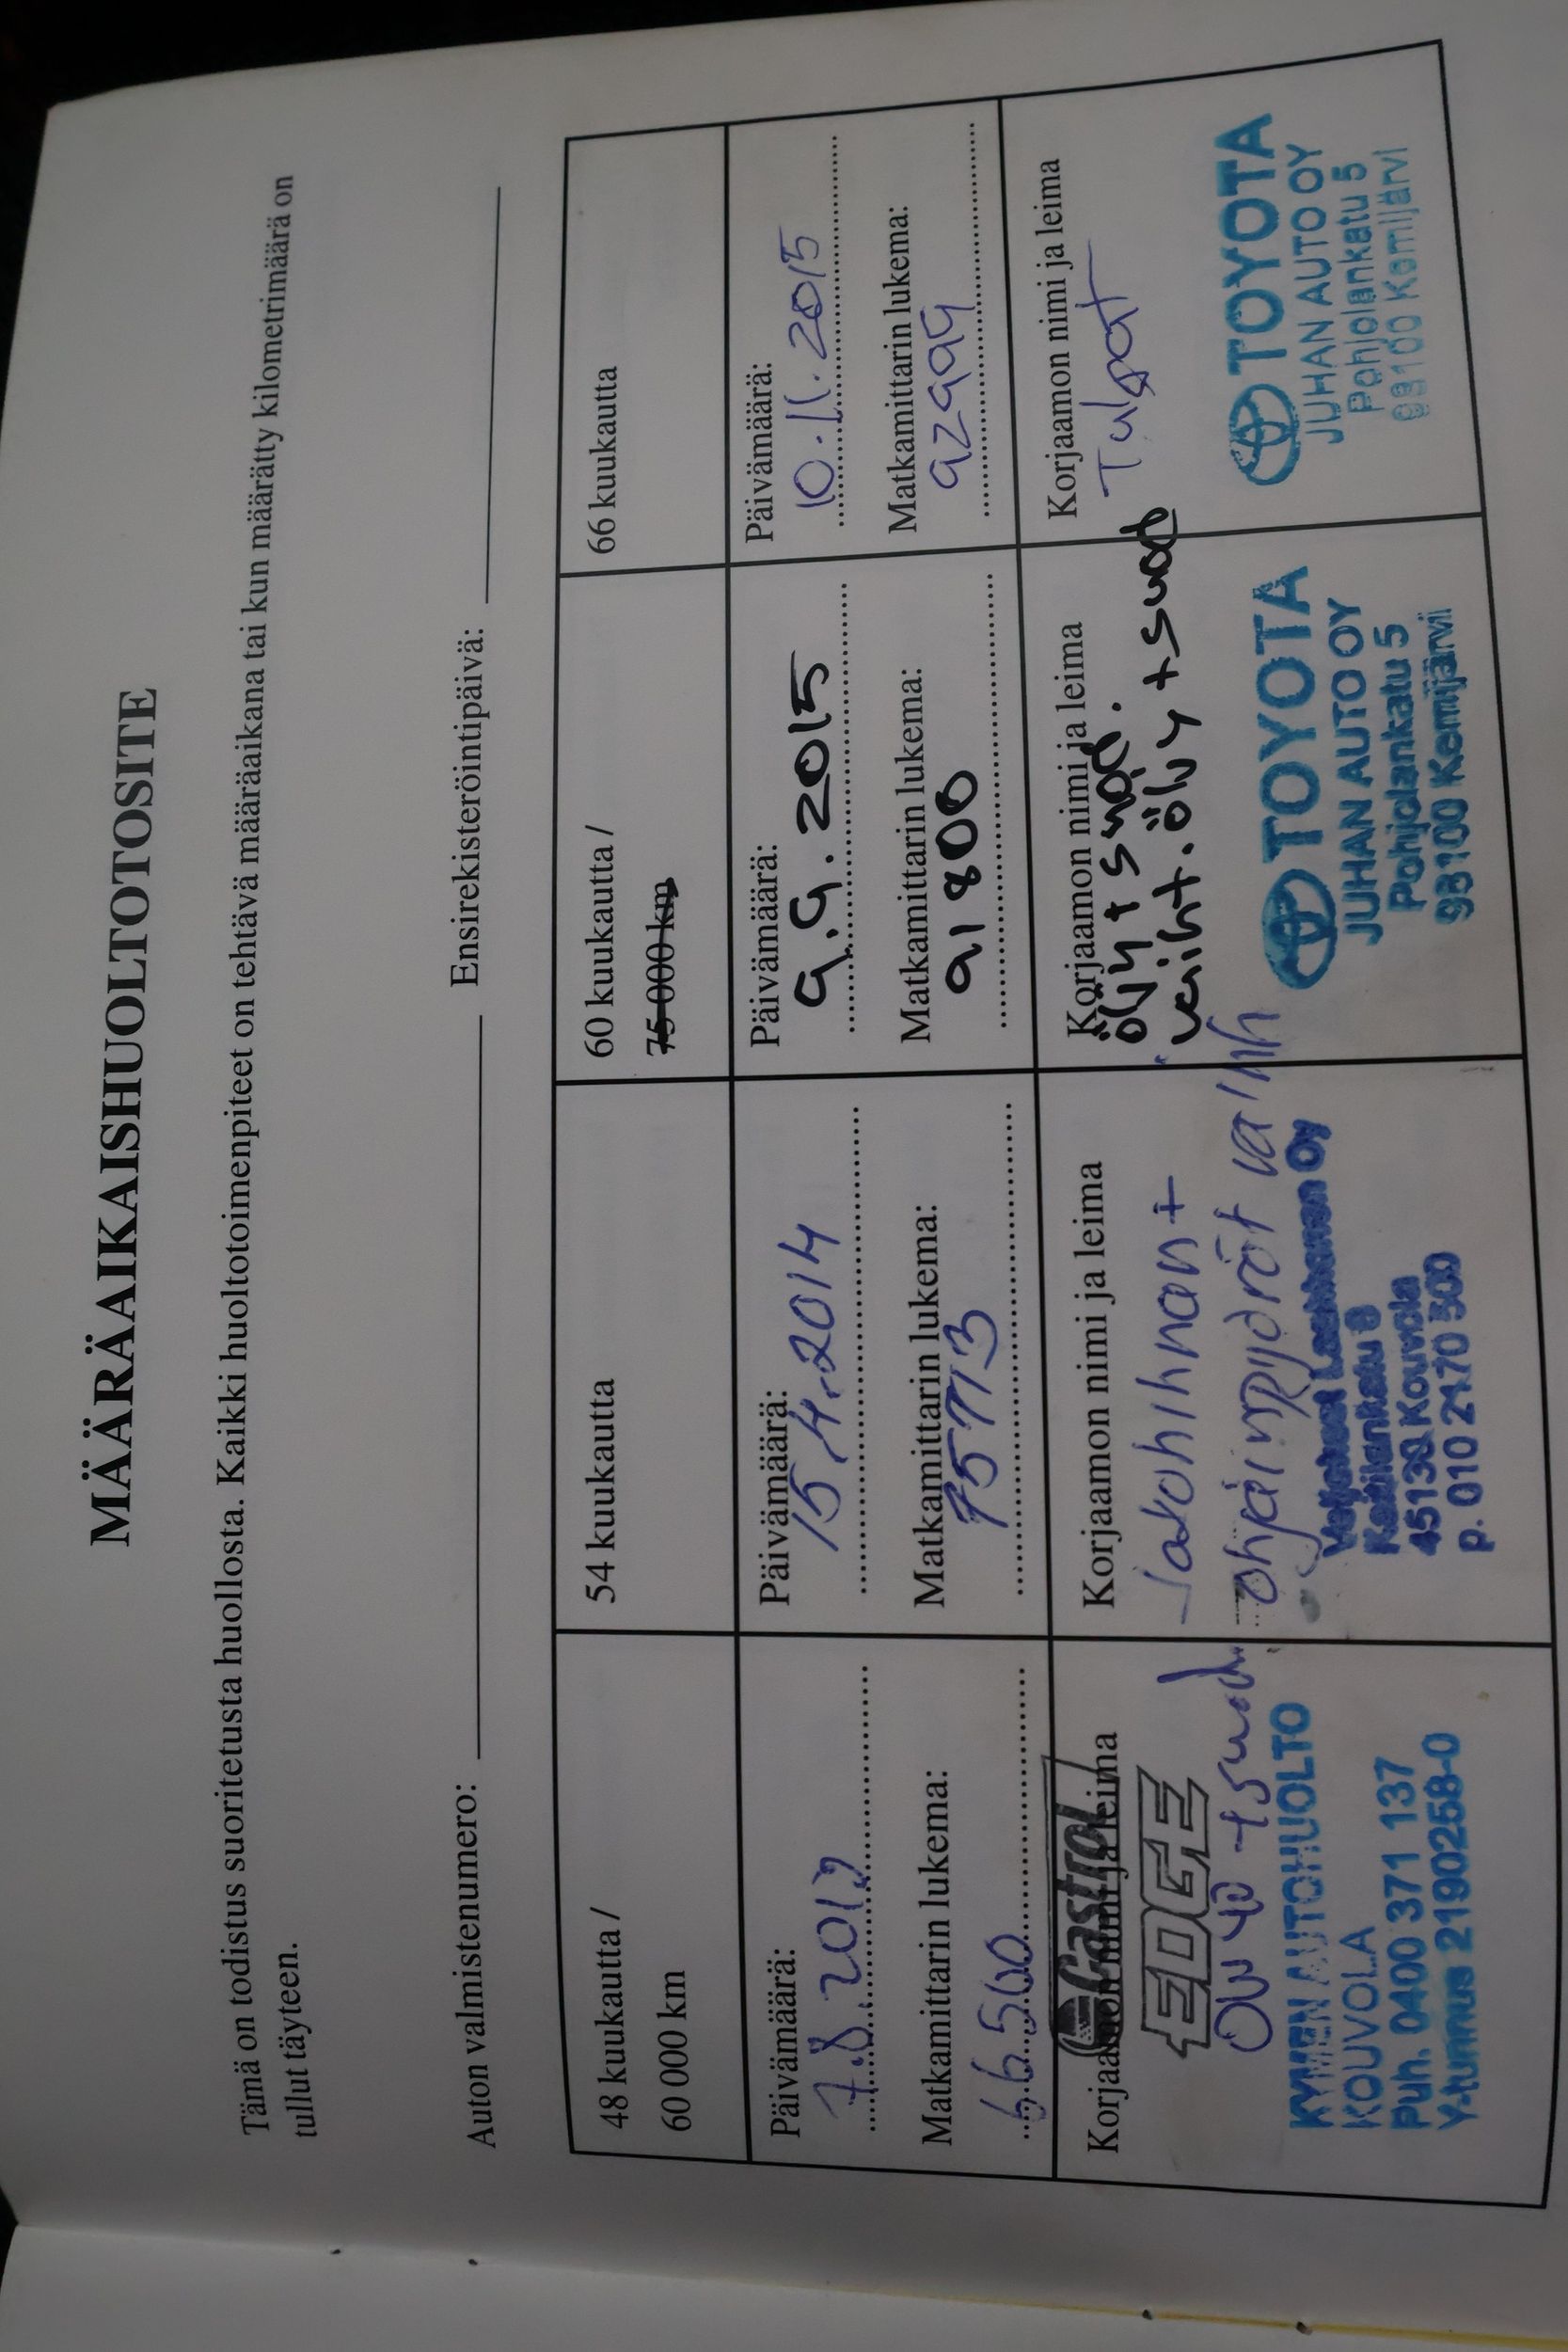 MÄÄRÄAIKAISHUOLTOTOSITE
Tämä on todistus suoritetusta huollosta. Kaikki huoltotoimenpiteet on tehtävä määräaikana tai kun määrätty kilometrimäärä on
tullut täyteen.
Auton valmistenumero:
Ensirekisteröintipäivä:
48 kuukautta /
60 000 km
Päivämäärä:
7.8.2012
Matkamittarin lukema:
66500
Korjaamon nimi ja leima
Castrol
EDGE
0W40 + suod.
KYMEN AUTOHUOLTO
KOUVOLA
Puh. 0400 371 137
Y-tunnus 2190258-0
54 kuukautta
Päivämäärä:
15.4.2014
Matkamittarin lukema:
75773
Korjaamon nimi ja leima
Jakohihnan +
ohjainpyörät vaihh
Veljekset Laakkonen Oy
45130 Kouvola
p. 010 2170 500
60 kuukautta /
75 000 km
Päivämäärä:
9.9.2015
Matkamittarin lukema:
91800
Korjaamon nimi ja leima
ölyt + suod.
vaiht. öljy + suod
TOYOTA
JUHAN AUTO OY
Pohjolankatu 5
98100 Kemijärvi
66 kuukautta
Päivämäärä:
10.11.2015
Matkamittarin lukema:
92999
Korjaamon nimi ja leima
TOYOTA
JUHAN AUTO OY
Pohjolankatu 5
98100 Kemijärvi